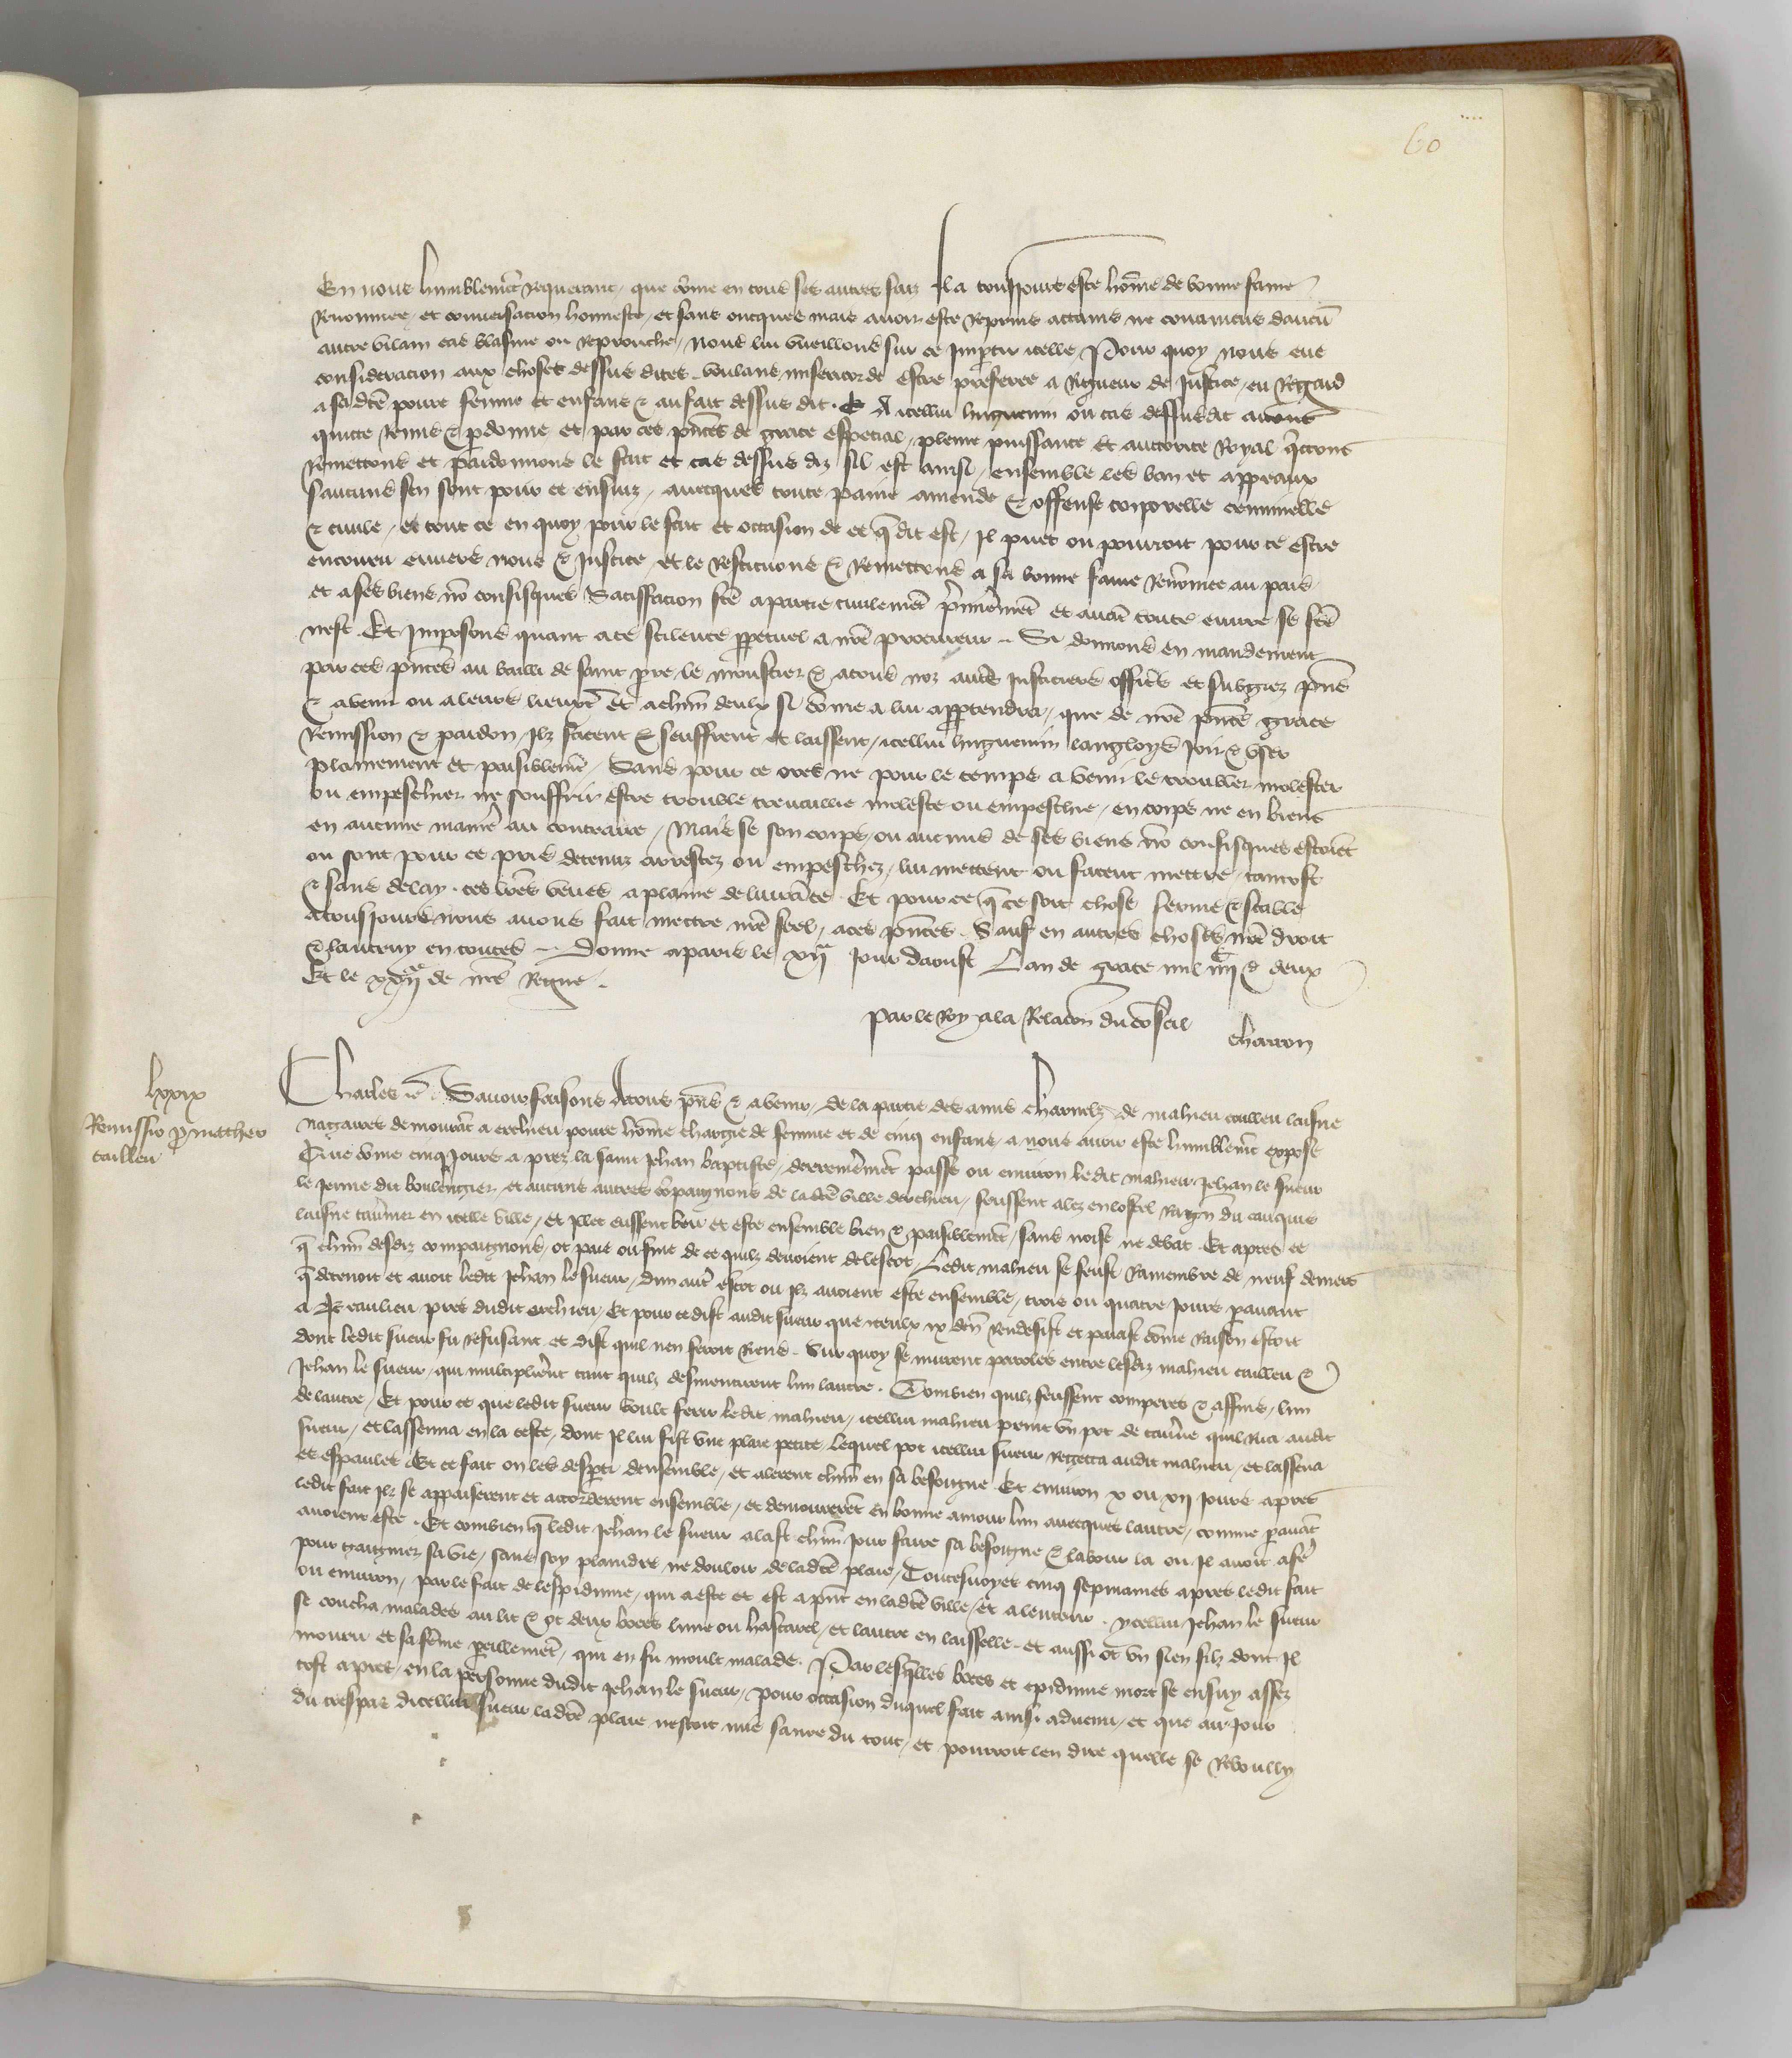 60
En nous humblemẽt requerant, que cõme en tous ses autres faiz Il a tousjours este hõme de bonne fame
Renommee, et conversacion honneste, et sans oncques mais avoir este reprins attaint ne convaincus daucũ
autre vilain cas blasme ou reprouche, Nous lui vueillons sur ce Impartir icelle, Pour quoy nous eue
consideracion aux choses dessus dites, voulans misericorde estre preferee a Rigueur de Justice, eu Regard
a sa dcẽ povre femme et enfans & au fait dessus dit. A icellui huguenin ou cas dessusdit avons
quitte Remis & pdonne et par ces pñtes de grace especial, pleine puissance et auctorite Royal qctons
Remettons et pardonnons le fait et cas dessus diz sil est ainsi, ensemble les ban et appeaux
saucuns sen sont pour ce ensuiz, avecques toute paine amende & offense corporelle criminelle
& civile, et tout ce en quoy pour le fait et occasion de ce q̃ dit est, Il puet ou pourroit pour ce estre
encouru envers nous & Justice, et le restituons & Remettons a sa bonne fame Renõmee au pais
et a ses biens nõ confisques Satisfacion fcẽ a partie civilemẽt p̃mieremẽt et avãt toute euvre se fcẽ
nest. Et Imposons quant a ce scilence ppetuel a nrẽ procureur. Si donnons en mandement
par ces pñtes au bailli de saint pre le moustier & a tous noz autẽs Justiciers offic̃s et subgiez pñs
& avenir ou a leurs lieuxtẽ et a chũn deulx si cõme a lui apptendra, que de nrẽ pñte grace
Remission & pardon, Ilz facent & seuffrent et laissent, icellui huguenin langloys Joir & user
plainement et paisiblemẽt, Sans pour ce ores ne pour le temps a venir le troubler molester
ou empeschier ne souffrir estre trouble travaillie moleste ou empeschie, en corps ne en biens
en aucune maniẽ au contraire, Mais se son corps, ou aucuns de ses biens nõ confisques estoiẽt
ou sont pour ce pris detenuz arrestez ou empeschez, lui mettent ou facent mettre, tantost
& sans delay, ces lr̃es veues a plaine delivrãce. Et pour ce q̃ ce soit chose ferme & stable
a tousjours nous avons fait mettre nrẽ seel, a ces pñtes. Sauf en autres choses nrẽ droit
& lautruy en toutes. Donne a paris le xij Jour daoust Lan de grace mil iiijc & deux
Et le xxije de nrẽ Regne.
Par le Roy a la Relacõn du cõseil
Charron
lxxix
Remissio p matheo
cailleu
Charles &c. Savoir faisons a tous pñs & avenir, de la partie des amis charnelz de mahieu cailleu laisne
nagaires demourãt a orchieu povre hõme chargie de femme et de cinq enfans, a nous avoir este humblemẽt expose
Que cõme cinq Jours a prez la saint Jehan baptiste, derrenieremẽt passe ou environ ledit mahieu, Jehan le sueur
le Jeune dit boulengier, et aucuns autres cõpaignons de ladcẽ ville dorchieu, feussent alez en lostel du cauquis
laisne tav̾nier en icelle ville, et Illec eussent beu et este ensemble bien & paisiblemẽt, sans noise ne debat. Et apres ce
q̃ chũn desdiz compaignons, ot paie ou fine de ce quilz devoient de lescot, Ledit mahieu se feust Ramembre de neuf deniers
q̃ detenoit et avoit ledit Jehan le sueur, dun autr̃ escot ou Ilz avoient este ensemble, trois ou quatre Jours pavant
a pres dudit orchieu, Et pour ce dist audit sueur que iceulx ix dẽn Rendesist et paiast cõme Raison estoit
dont ledit sueur fu refusant et dist quil nen feroit Riens. Sur quoy se murent paroles entre lesdiz mahieu cailleu &
Jehan le sueur, qui multiplierẽt tant quilz desmentirent lun lautre. Combien quilz feussent comperes & affins, lun
de lautre, Et pour ce que ledit sueur voult ferir ledit mahieu, icellui mahieu print un pot de tav̾ne quil rua audit
sueur, et lassenna en la teste, dont Il lui fist une plaie petite, lequel pot icellui sueur regetta audit mahieu, et lassena
es espaules. Et ce fait on les desparti densemble, et alerent chũn en sa besoigne. Et environ x ou xij Jours apres
ledit fait Ilz se appaiserent et accorderent ensemble, et demourerẽt en bonne amour lun avecques lautre, comme pavãt
avoient este. Et combien q̃ ledit Jehan le sueur alast chũn Jour faire sa besoigne & labour la ou Il avoit a fẽ
pour gaigner sa vie, sans soy plaindre ne douloir de ladcẽ plaie, Toutesvoyes cinq sepmaines apres ledit fait
ou environ, par le fait de lespidimie, qui a este et est a pñt en ladcẽ ville, et a lenviron, ycellui Jehan le sueur
se coucha malades au lit & ot deux boces lune ou hasterel, et lautre en laisselle, et aussi ot un sien filz dont Il
mouru et sa fẽme parillemẽt, qui en fu moult malade. Par lesq̃lles boces et epidimie mort se ensuy assez
tost apres, en la personne dudit Jehan le sueur, Pour occasion duquel fait ainsi advenu, et que au Jour
du trespas dicellui sueur ladcẽ plaie nestoit mie sanee du tout, et pourroit len dire quelle se Rebouilly